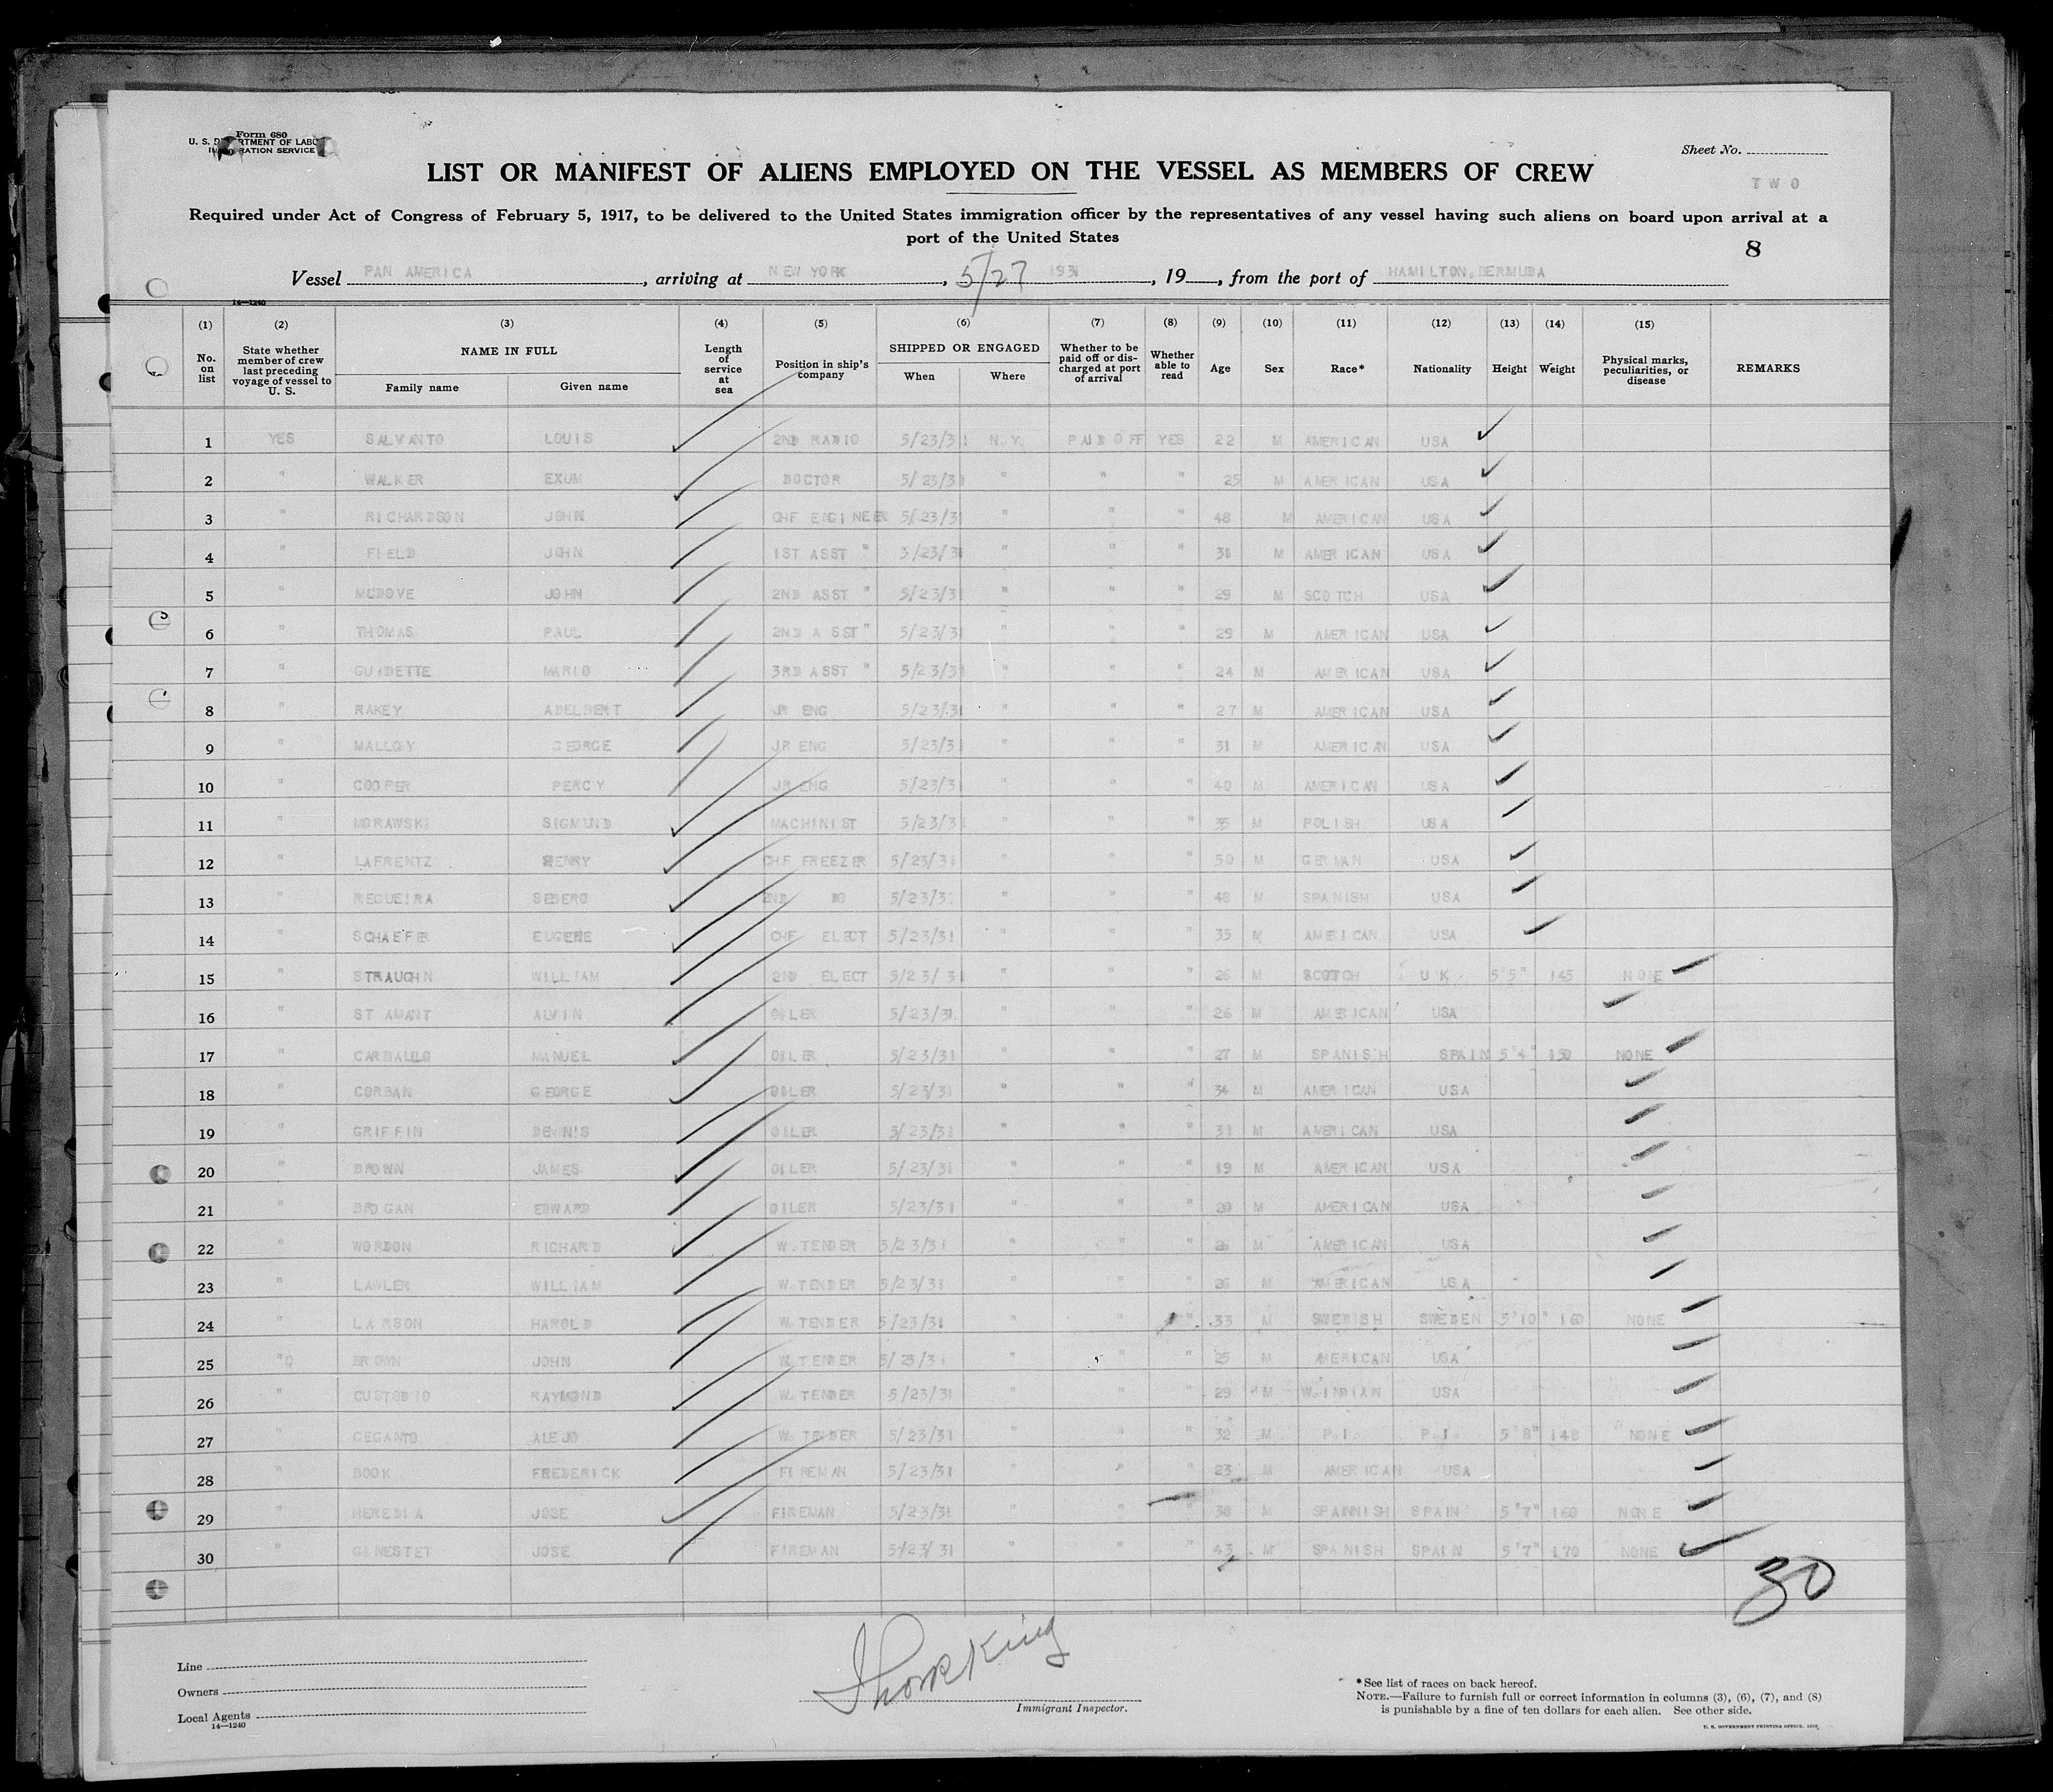 Form 680
U. S. DEPARTMENT OF LABOR
IMMIGRATION SERVICE
Sheet No.
TWO
LIST OR MANIFEST OF ALIENS EMPLOYED ON THE VESSEL AS MEMBERS OF CREW
Required under Act of Congress of February 5, 1917, to be delivered to the United States immigration officer by the representatives of any vessel having such aliens on board upon arrival at a
port of the United States
8
Vessel PAN AMERICA, arriving at NEW YORK, 5/27 1931, 19__, from the port of HAMILTON, BERMUDA
14—1240
(1) (2) (3) (4) (5) (6) (7) (8) (9) (10) (11) (12) (13) (14) (15)
No. on list State whether member of crew last preceding voyage of vessel to U. S. NAME IN FULL Family name Given name Length of service at sea Position in ship's company SHIPPED OR ENGAGED When Where Whether to be paid off or discharged at port of arrival Whether able to read Age Sex Race* Nationality Height Weight Physical marks, peculiarities, or disease REMARKS
1 YES SALVANTO LOUIS 2ND RADIO 5/23/31 N.Y. PAID OFF YES 22 M AMERICAN USA
2 " WALKER EXUM DOCTOR 5/23/31 " " " 25 M AMERICAN USA
3 " RICHARDSON JOHN CHF ENGINEER 5/23/31 " " " 48 M AMERICAN USA
4 " FIELD JOHN 1ST ASST " 3/23/31 " " " 31 M AMERICAN USA
5 " MCDOVE JOHN 2ND ASST " 5/23/31 " " " 29 M SCOTCH USA
6 " THOMAS PAUL 2ND ASST " 5/23/31 " " " 29 M AMERICAN USA
7 " GUIDETTE MARIO 3RD ASST " 5/23/31 " " " 24 M AMERICAN USA
8 " RAKEY ADELBERT JR ENG 5/23/31 " " " 27 M AMERICAN USA
9 " MALLOY GEORGE JR ENG 5/23/31 " " " 31 M AMERICAN USA
10 " COOPER PERCY JR ENG 5/23/31 " " " 40 M AMERICAN USA
11 " MORAWSKI SIGMUND MACHINIST 5/23/31 " " " 35 M POLISH USA
12 " LAFRENTZ HENRY CHF FREEZER 5/23/31 " " " 50 M GERMAN USA
13 " REGUEIRA SEBERO 2ND DO 5/23/31 " " " 48 M SPANISH USA
14 " SCHAEFER EUGENE CHF ELECT 5/23/31 " " " 35 M AMERICAN USA
15 " STRAUGHN WILLIAM 2ND ELECT 5/23/31 " " " 26 M SCOTCH U K 5'5" 145 NONE
16 " ST AMANT ALVIN OILER 5/23/31 " " " 26 M AMERICAN USA
17 " CARBALLO MANUEL OILER 5/23/31 " " " 27 M SPANISH SPAIN 5'4" 150 NONE
18 " CORBAN GEORGE OILER 5/23/31 " " " 34 M AMERICAN USA
19 " GRIFFIN DENNIS OILER 5/23/31 " " " 31 M AMERICAN USA
20 " BROWN JAMES OILER 5/23/31 " " " 19 M AMERICAN USA
21 " BROGAN EDWARD OILER 5/23/31 " " " 20 M AMERICAN USA
22 " WORDON RICHARD W.TENDER 5/23/31 " " " 26 M AMERICAN USA
23 " LAWLER WILLIAM W.TENDER 5/23/31 " " " 26 M AMERICAN USA
24 " LARSON HAROLD W.TENDER 5/23/31 " " " 33 M SWEDISH SWEDEN 5'10" 160 NONE
25 " BROWN JOHN W.TENDER 5/23/31 " " " 25 M AMERICAN USA
26 " CUSTODIO RAYMOND W.TENDER 5/23/31 " " " 29 M W.INDIAN USA
27 " GEGANTO ALEJO W.TENDER 5/23/31 " " " 32 M P.I. P.I. 5'8" 148 NONE
28 " BOOK FREDERICK FIREMAN 5/23/31 " " " 23 M AMERICAN USA
29 " HEREDIA JOSE FIREMAN 5/23/31 " " " 38 M SPANNISH SPAIN 5'7" 160 NONE
30 " GINESTET JOSE FIREMAN 5/23/31 " " " 43 M SPANISH SPAIN 5'7" 170 NONE
30
Line
Owners
Local Agents
14—1240
Immigrant Inspector.
*See list of races on back hereof.
NOTE.—Failure to furnish full or correct information in columns (3), (6), (7), and (8)
is punishable by a fine of ten dollars for each alien. See other side.
U. S. GOVERNMENT PRINTING OFFICE